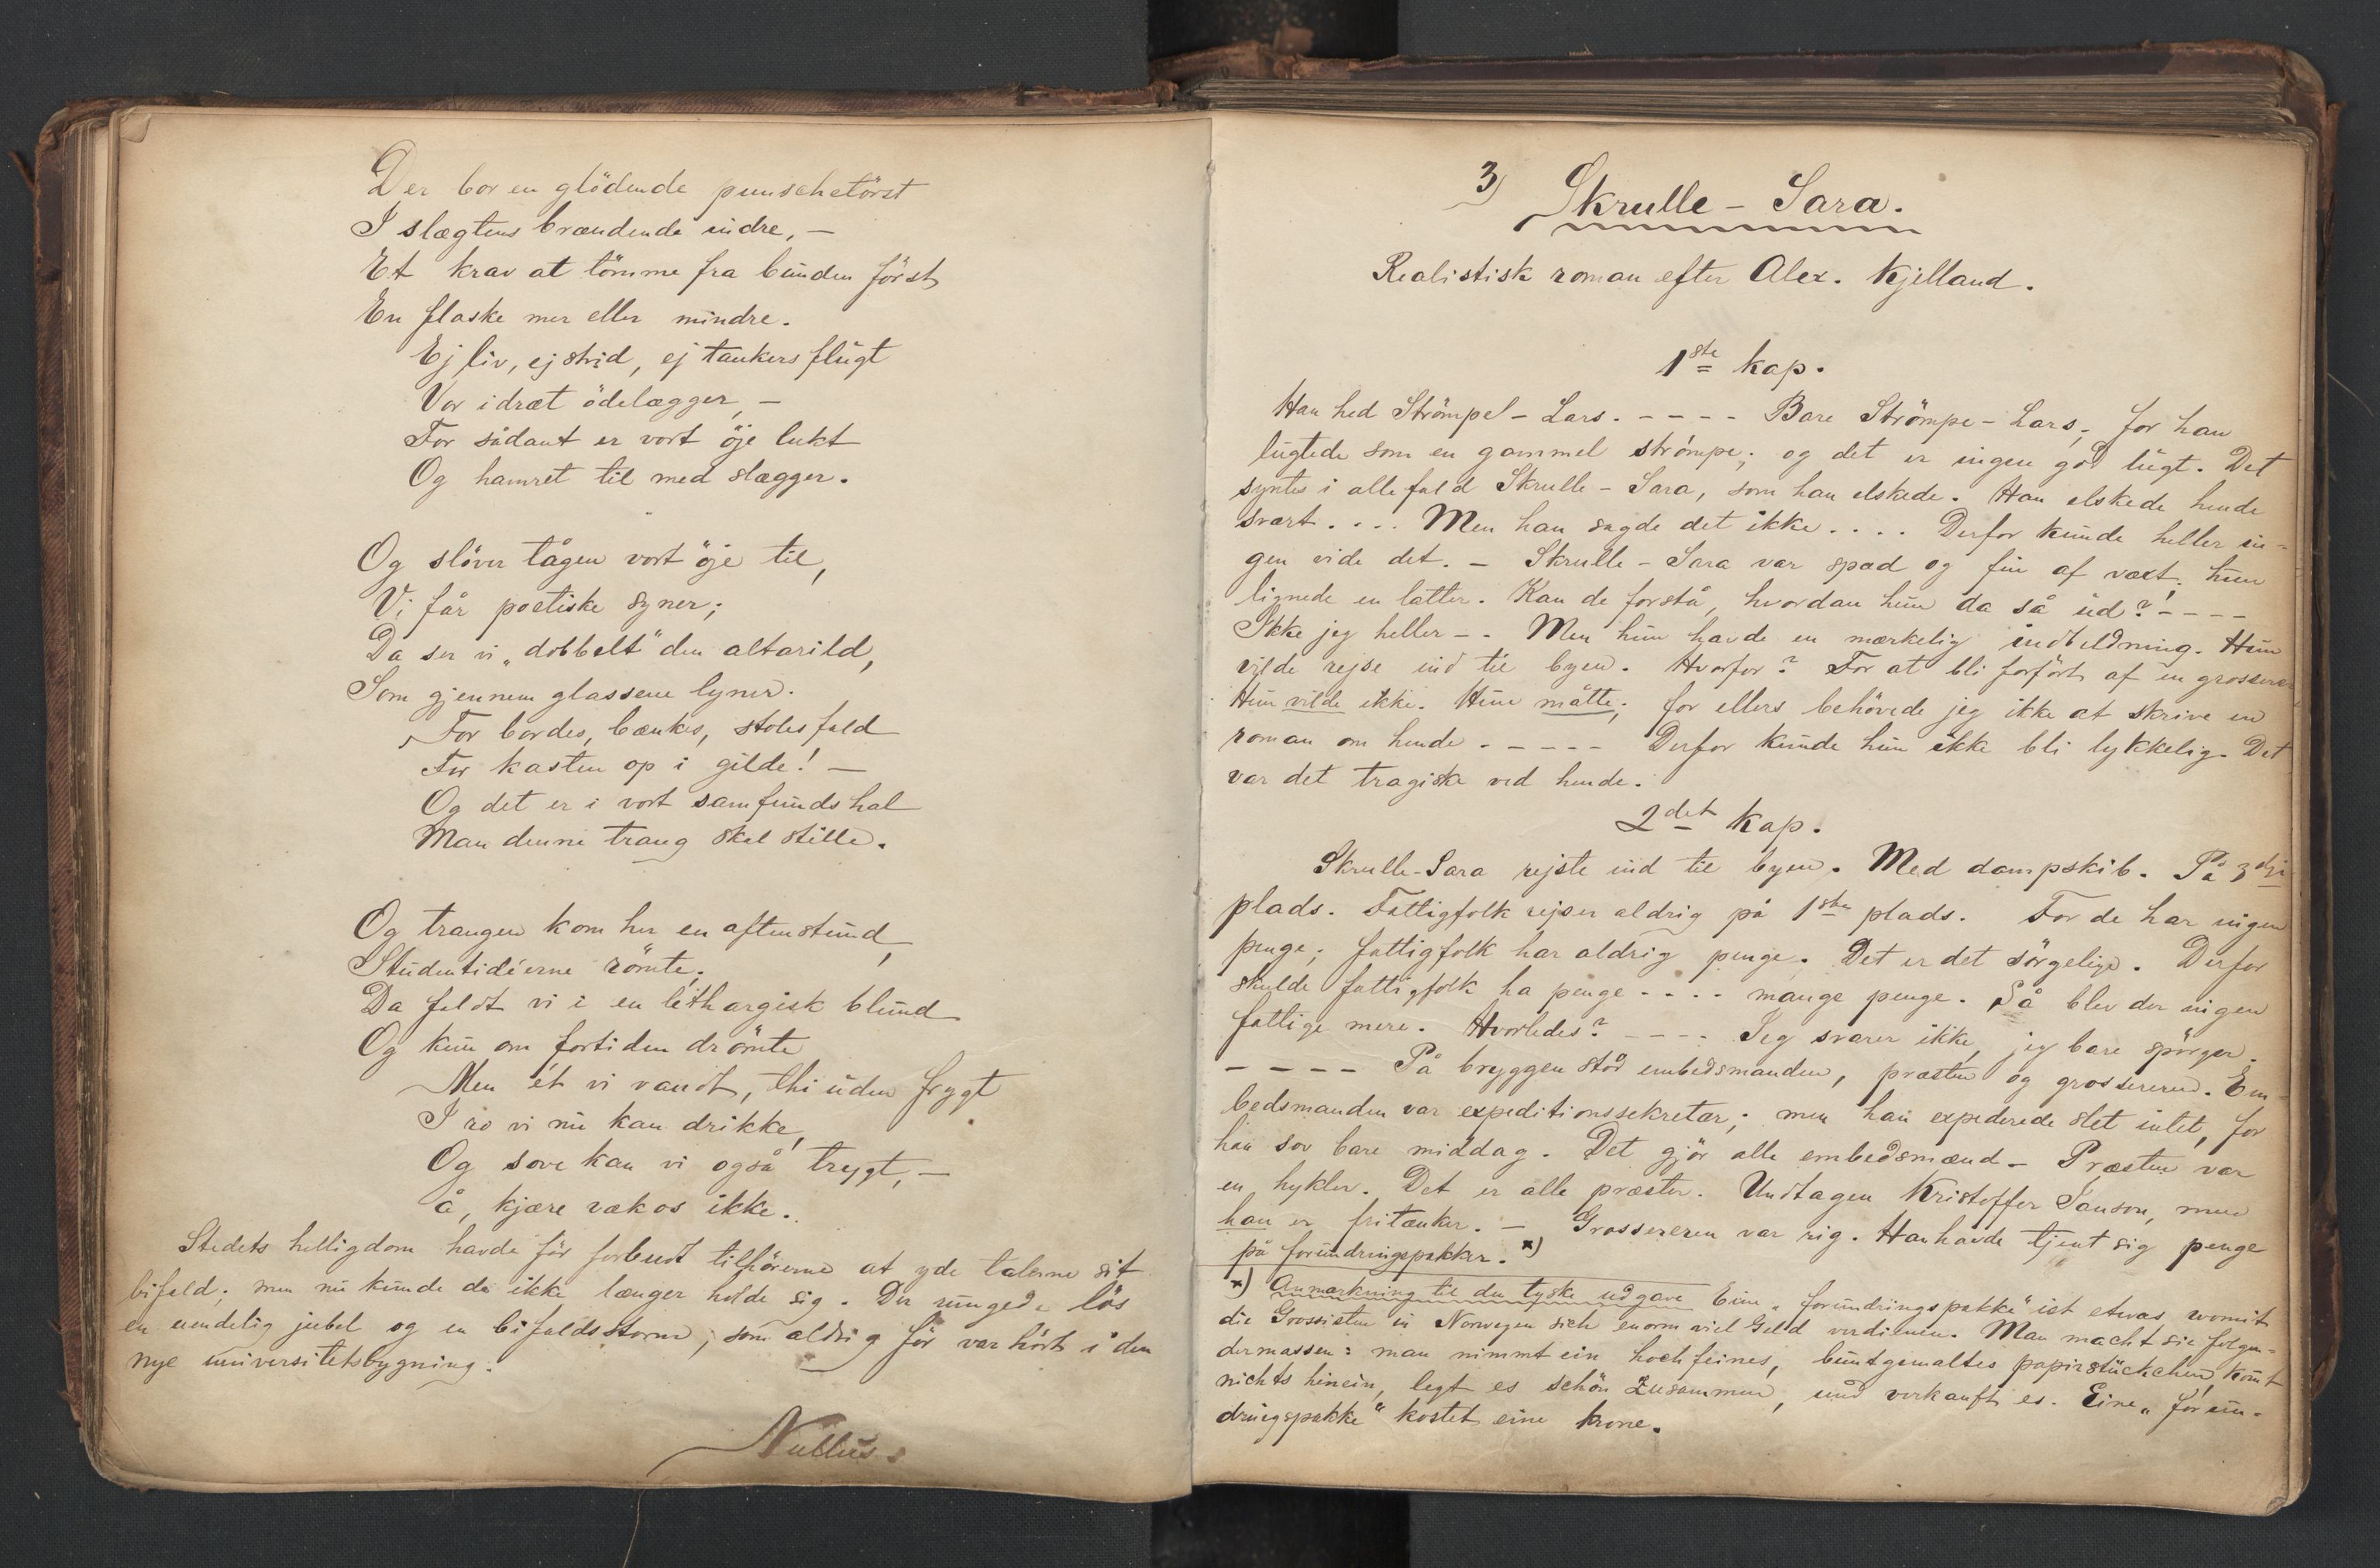 Der bor en glödende punschetörst
I slægtens brændende indre, —
Et krav at tömme fra bunden först
En flaske mer eller mindre.
Ej liv, ej strid, ej tankers flugt
Vor idræt ödelægger, —
For sådant er vort öje lukt
Og hamret til med slægger.
Og slöver tågen vort öje til,
Vi får poetiske syner;
Da ser vi „dobbelt" den altarild,
Som gjennem glassene lyner.
For bordes, bænkes, stoles fald
For kasten op i gilde! —
Og det er i vort samfundshal
Man denne trang skal stille.
Og trangen kom her en aftenstund,
Studentidéerne römte;
Da faldt vi i en lethargisk blund
Og kun om fortiden drömte
Men ét vi vandt, thi uden frygt
I ro vi nu kan drikke,
Og sove kan vi også trygt, —
å, kjære væk os ikke.
Stedets helligdom havde för forbudt tilhörerne at yde talerne sit
bifald; men nu kunde de ikke længer holde sig. Der rungede lös
en uendelig jubel og en bifaldsstorm, som aldrig för var hört i den
nye universitetsbygning.
Nullus.
3) Skrulle-Sara.
Realistisk roman efter Alex. Kjelland.
1ste kap.
Han hed Strömpe-Lars. - - - - Bare Strömpe-Lars; for han
lugtede som en gammel strömpe; og det er ingen god lugt. Det
syntes i alle fald Skrulle-Sara, som han elskede. Han elskede hende
svært. ... Men han sagde det ikke. ... Derfor kunde heller in-
gen vide det. — Skrulle-Sara var spæd og fin af væxt; hun
lignede en latter. Kan de forstå, hvordan hun da så ud? - - - -
Ikke jeg heller -. Men hun havde en mærkelig indbildning. Hun
vilde rejse ind til byen. Hvorfor? For at bli forfört af en grosserer
Hun vilde ikke. Hun måtte; for ellers behövede jeg ikke at skrive en
roman om hende. - - - - Derfor kunde hun ikke bli lykkelig. Det
var det tragiske ved hende.
2det kap.
Skrulle-Sara rejste ind til byen. Med dampskib. På 3die
plads. Fattigfolk rejser aldrig på 1ste plads. For de har ingen
penge; fattigfolk har aldrig penge. Det er det sörgelige. Derfor
skulde fattigfolk ha penge - - - - mange penge. Så blev der ingen
fattige mere. Hvorledes? - - - - Jeg svarer ikke, jeg bare spörger.
- - - - På bryggen stod embedsmanden, præsten og grossereren. Em-
bedsmanden var expeditionssekretær; men han expederede slet intet, for
han sov bare middag. Det gjör alle embedsmænd - Præsten var
en hykler. Det er alle præster. Undtagen Kristoffer Janson, men
han er fritænker. — Grossereren var rig. Han havde tjent sig penge
på forundringspakker. *)
*) Anmærkning til den tyske udgave Eine „forundringspakke" ist etwas, womit
die Grossisten in Norwegen sich enorm viel Geld verdienen. Man macht sie folgen-
dermassen: man nimmt ein hochfeines, buntgemaltes papirstückchen, kömt
nichts hinein, legt es schön zusammen, und verkauft es. Eine „forun-
dringspakke" kostet eine krone.